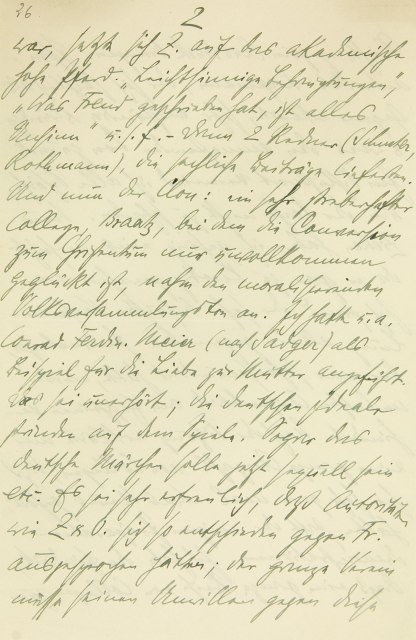 26. 2
war, setzte sich Z. auf das akademische
hohe Pferd. „Leichtsinnige Behauptungen,"
„was Freud geschrieben hat, ist alles
Unsinn" u. s. f. – Dann 2 Redner (Schuster,
Rothmann), die sachliche Beiträge lieferten.
Und nun der Clou: ein sehr streberhafter
College, Braatz, bei dem die Conversion
zum Christentum nur unvollkommen
geglückt ist, nahm den moralisierenden
Volksversammlungston an. Ich hatte u. a.
Conrad Ferdin. Meier (nach Sadger) als
Beispiel für die Liebe zur Mutter angeführt.
Das sei unerhört; die deutschen Ideale
ständen auf dem Spiele. Sogar das
deutsche Märchen solle jetzt sexuell sein
etc. Es sei sehr erfreulich, daß Autoritäten
wie Z & O. sich so entschieden gegen Fr.
ausgesprochen hätten; der ganze Verein
müsse seinen Unwillen gegen diese